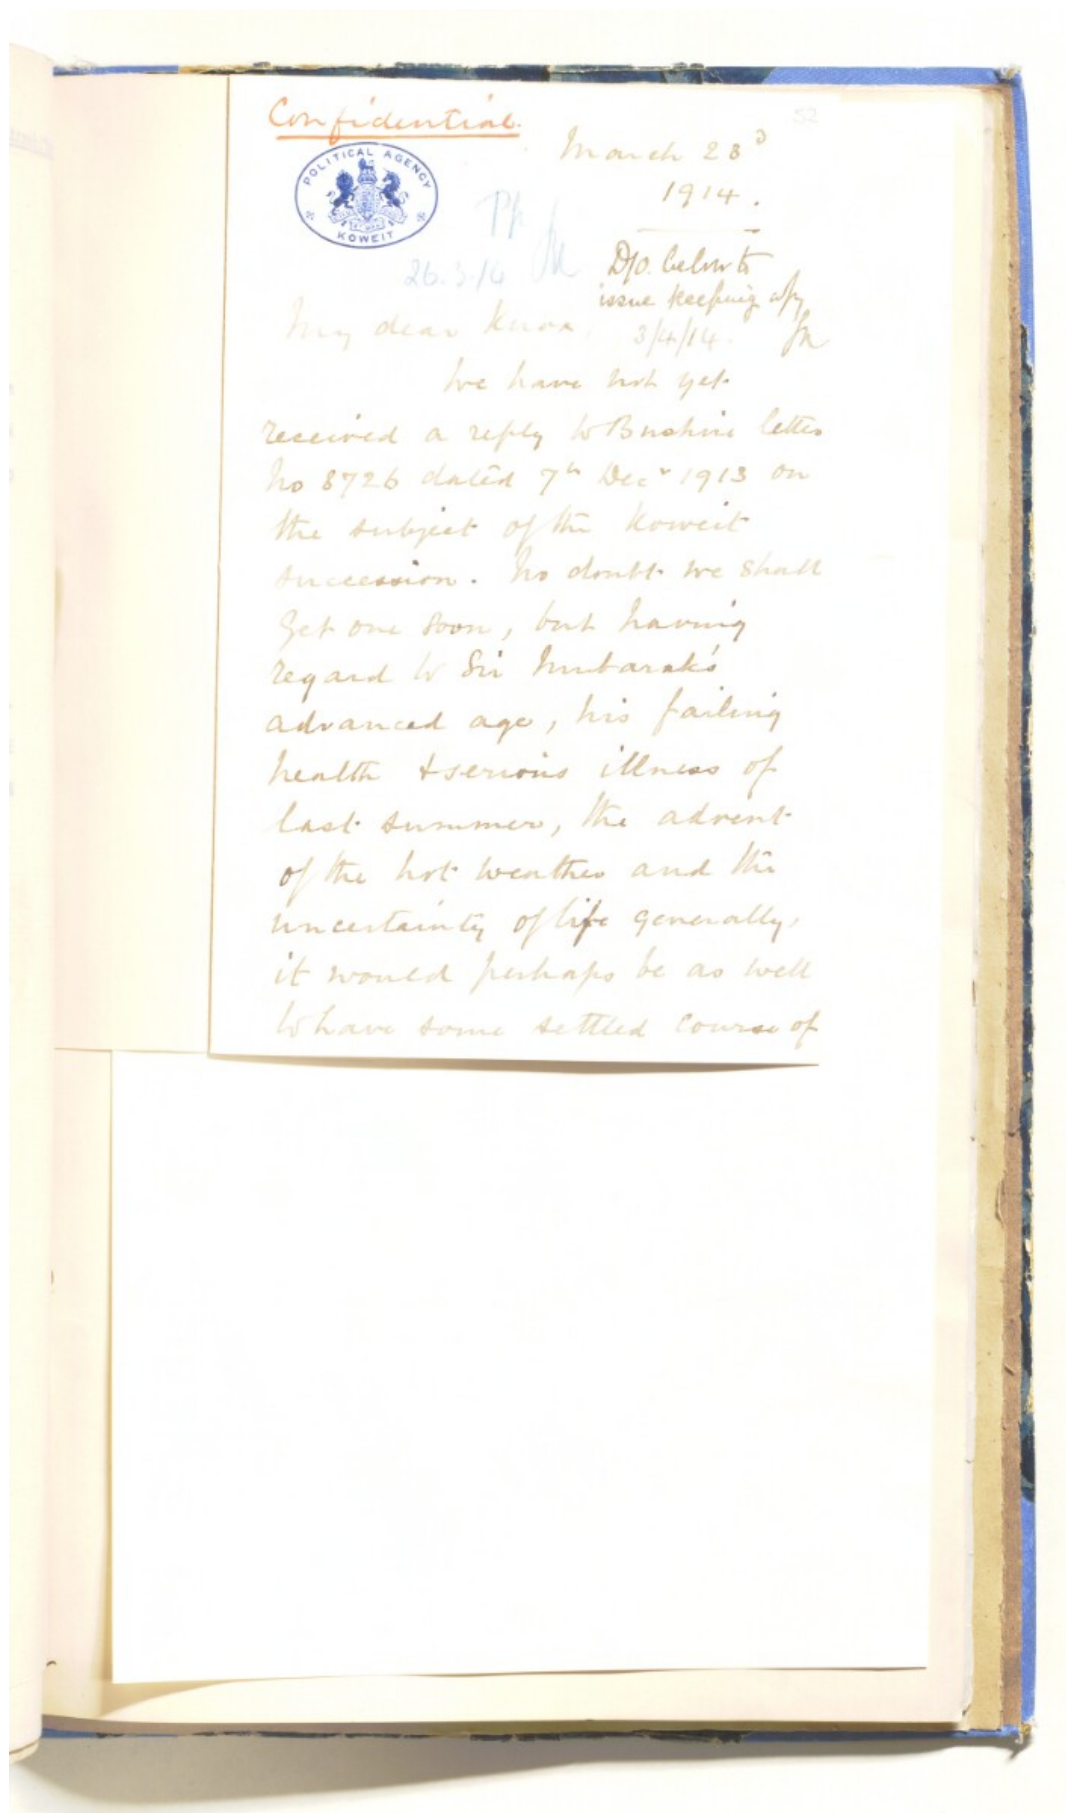 Confidential.
52
POLITICAL AGENCY
KOWEIT
March 23d
1914.
26.3.14
D/o. below to
issue keeping copy
3/4/14.
My dear Knox,
We have not yet
received a reply to Bushire letter
No 3726 dated 7th Decr 1913 on
the subject of the Koweit
succession. No doubt we shall
get one soon, but having
regard to Sir Mubarak's
advanced age, his failing
health & serious illness of
last summer, the advent
of the hot weather and the
uncertainty of life generally,
it would perhaps be as well
to have some settled course of